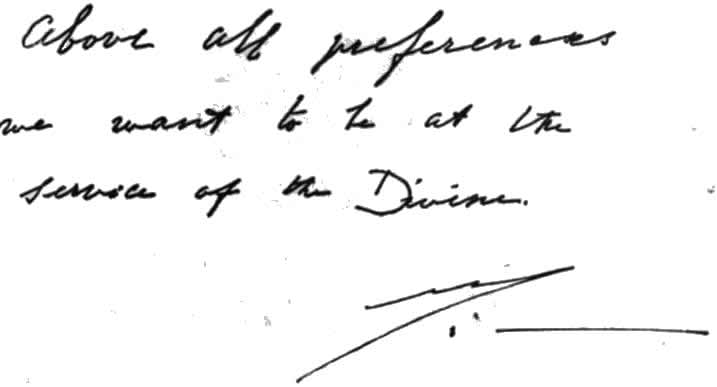 Above all preferences
we want to be at the
service of the Divine.